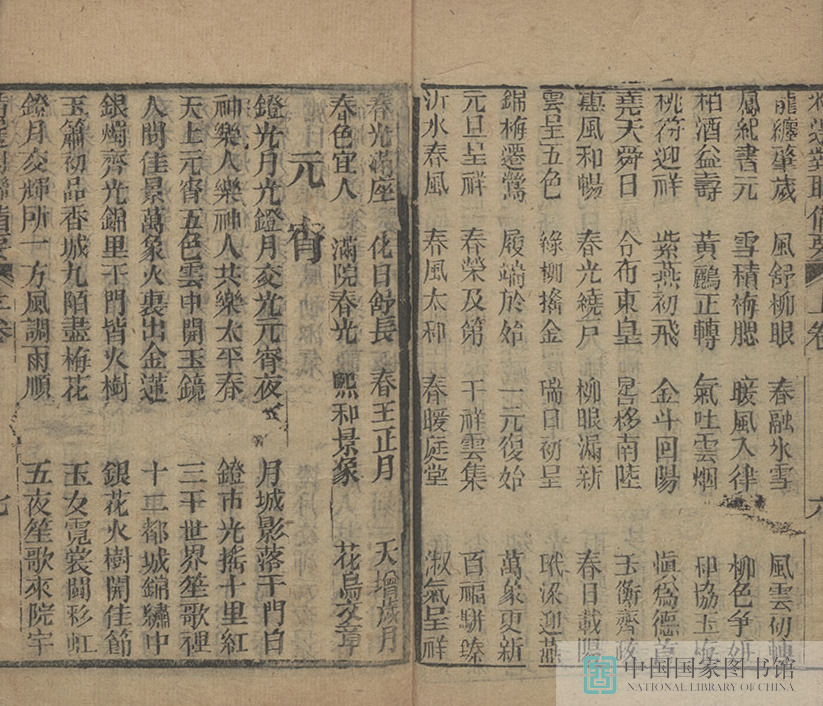 上卷 六
龍纏肇歲 風舒柳眼 春融氷雪 風雲初轉
鳳紀書元 雪積梅腮 暖風入律 柳色争妍
柏酒益壽 黃鸝正轉 氣吐雲烟 和協玉
桃符迎祥 紫燕初飛 金斗回陽 愼爲德
堯天舜日 令布東皇 晷移南陸 玉衡齊政
惠風和暢 春光繞戶 柳眼漏新 春日載陽
雲呈五色 綠柳搖金 瑞日初呈 玳梁迎燕
錦梅遷鶯 履端於始 一元復始 萬象更新
元旦呈祥 春榮及第 千祥雲集 百福駢臻
沂水春風 春風太和 春暖庭堂 淑氣呈祥
春光滿座 化日舒長 春王正月 天增歲月
春色宜人 滿院春光 熙和景象 花鳥文章
元宵
鐙光月光鐙月交光元宵夜 月城影落千門白
神樂人樂神人共樂太平春 鐙市光搖十里紅
天上元宵五色雲中開玉鏡 三千世界笙歌裡
人間佳景萬象火裏出金蓮 十二都城錦繡中
銀燭齊光錦里千門皆火樹 銀花火樹開佳節
玉簫初品香城九陌盡梅花 玉女霓裳鬪彩虹
鐙月交輝所一方風調雨順 五夜笙歌來院宇
上卷 七
中国国家图书馆
NATIONAL LIBRARY OF CHINA